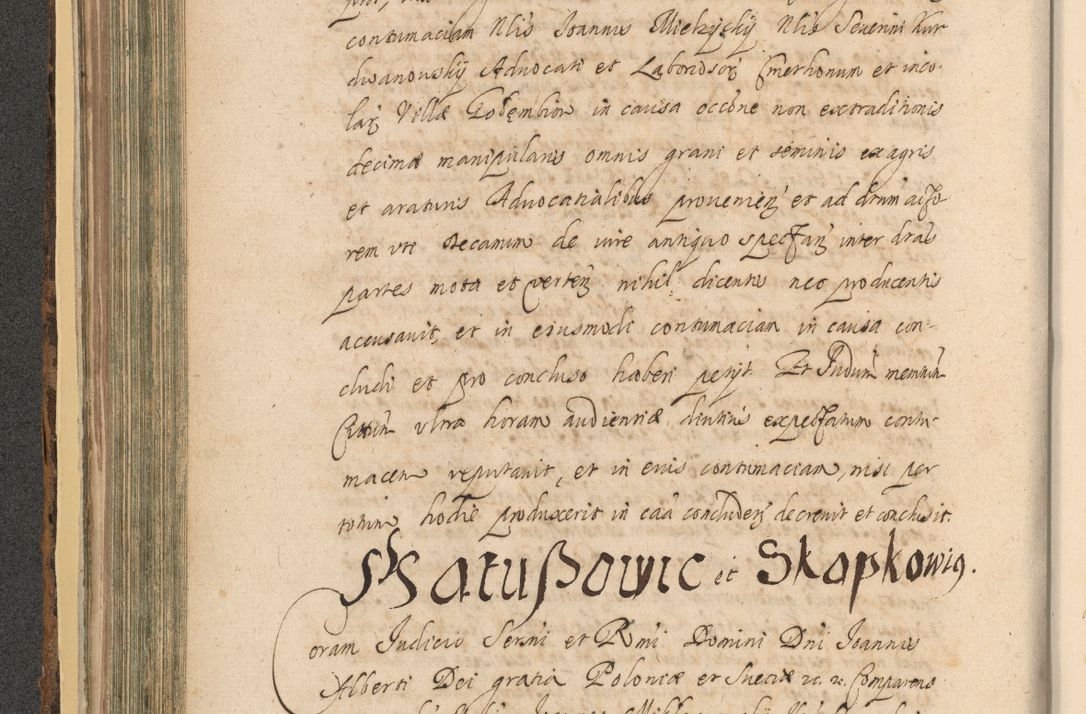 contumaciam Nlis Joannis Mielzyskij Nlis Severini Kur
dwanowskij Advocati et Laboriosor Cmethonum et inco-
lar Villæ Golembiow in causa occõne non extraditionis
decimæ manipularis omnis grani et seminis ex agris
et araturis Advocatialibus provenien et ad drum actо
rem uti decanum de iure antiquo spectan inter dras
partes mota et verten nihil dicentis nec producentis
accusavit, et in eiusmodi contumaciam in causa con-
cludi et pro concluso haberi petijt Et Judum
ultra horam audientiæ diutius expectatum contu-
macem reputavit, et in eius contumaciam, nisi per
totum hodie produxerit in caa concludend decrevit et conclusit.
et Skapkowig.
Coram Judicio Sermi et Rmi Domini Dni Joannis
Alberti Dei gratia Poloniæ et Sueciæ Comparens